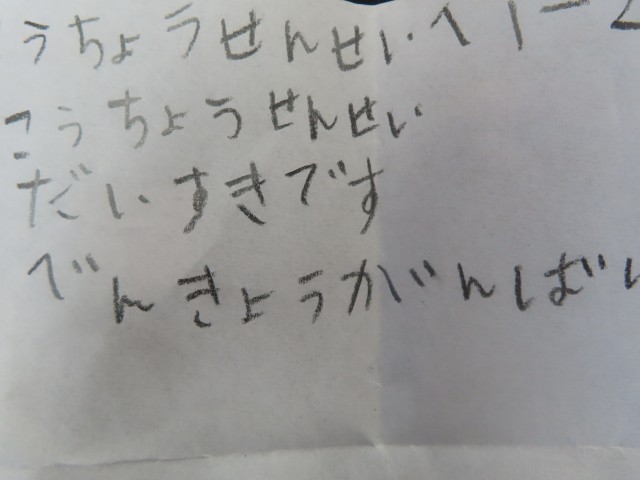 うちょうせんせいへ 1-2
こうちょうせんせい
だいすきです
べんきょうがんば